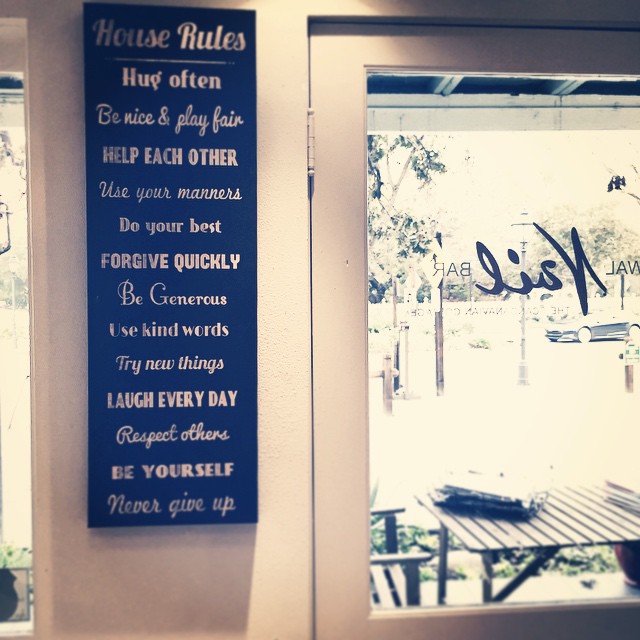 House Rules
Hug often
Be nice & play fair
HELP EACH OTHER
Use your manners
Do your best
FORGIVE QUICKLY
Be Generous
Use kind words
Try new things
LAUGH EVERY DAY
Respect others
BE YOURSELF
Never give up
Nail BAR